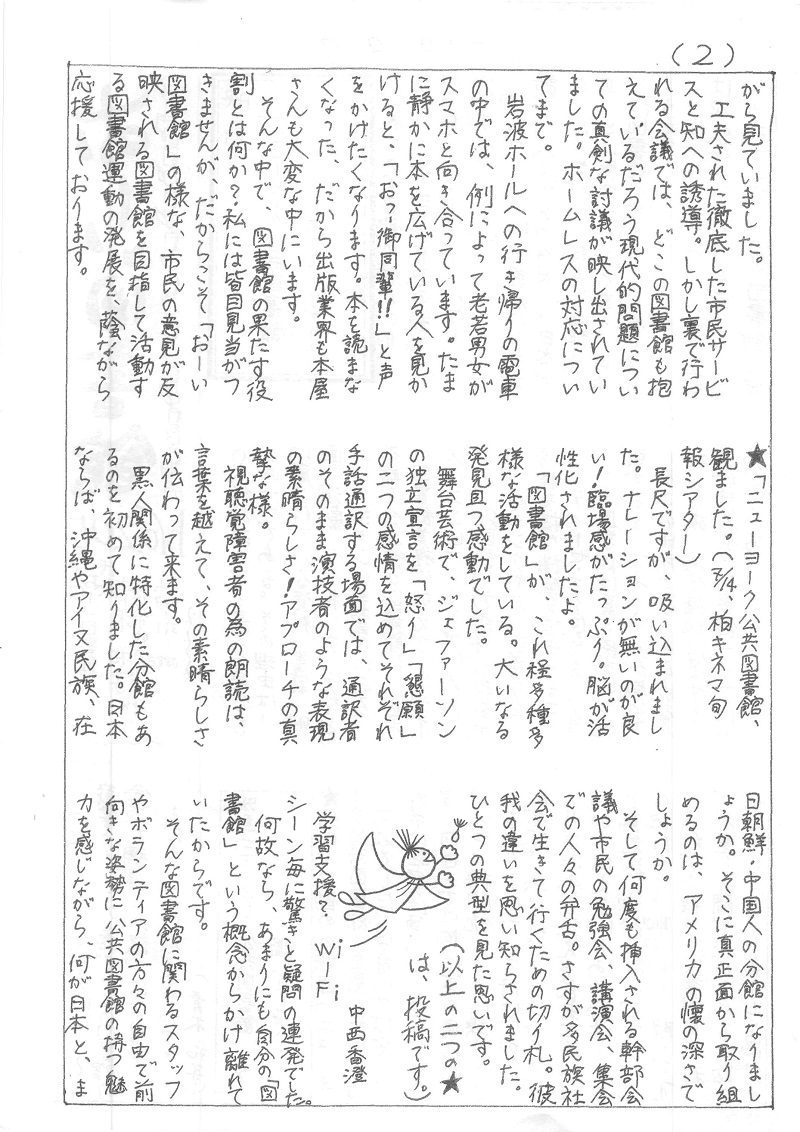 (2)
がら見ていました。
工夫された徹底した市民サービ
スと知への誘導。しかし裏で行わ
れる会議では、どこの図書館も抱
えているだろう現代的問題につい
ての真剣な討議が映し出されてい
ました。ホームレスの対応につい
てまで。
岩波ホールへの行き帰りの電車
の中では、例によって老若男女が
スマホと向き合っています。たま
に静かに本を広げている人を見か
けると、「おっ、御同輩!!」と声
をかけたくなります。本を読まな
くなった、だから出版業界も本屋
さんも大変な中にいます。
そんな中で、図書館の果たす役
割とは何か?私には皆目見当がつ
きませんが、だからこそ「おーい
図書館」の様な、市民の意見が反
映される図書館を目指して活動す
る図書館運動の発展を、蔭ながら
応援しております。
★「ニューヨーク公共図書館、
観ました。(7/4、柏キネマ旬
報シアター)
長尺ですが、吸い込まれまし
た。ナレーションが無いのが良
い!臨場感がたっぷり。脳が活
性化されましたよ。
「図書館」が、これ程多種多
様な活動をしている。大いなる
発見且つ感動でした。
舞台芸術で、ジェファーソン
の独立宣言を「怒り」「懇願」
の二つの感情を込めてそれぞれ
手話通訳する場面では、通訳者
のそのまま演技者のような表現
の素晴らしさ!アプローチの真
摯な様。
視聴覚障害者の為の朗読は、
言葉を越えて、その素晴らしさ
が伝わって来ます。
黒人関係に特化した分館もあ
るのを初めて知りました。日本
ならば、沖縄やアイヌ民族、在
日朝鮮・中国人の分館になりまし
ょうか。そこに真正面から取り組
めるのは、アメリカの懐の深さで
しょうか。
そして何度も挿入される幹部会
議や市民の勉強会、講演会、集会
での人々の弁舌。さすが多民族社
会で生きて行くための切り札。彼
我の違いを思い知らされました。
ひとつの典型を見た思いです。
(以上の二つの★
は、投稿です。)
学習支援? Wi-Fi
中西香澄
シーン毎に驚きと疑問の連発でした。
何故なら、あまりにも自分の「図
書館」という概念からかけ離れて
いたからです。
そんな図書館に関わるスタッフ
やボランティアの方々の自由で前
向きな姿勢に公共図書館の持つ魅
力を感じながら、何が日本と、ま